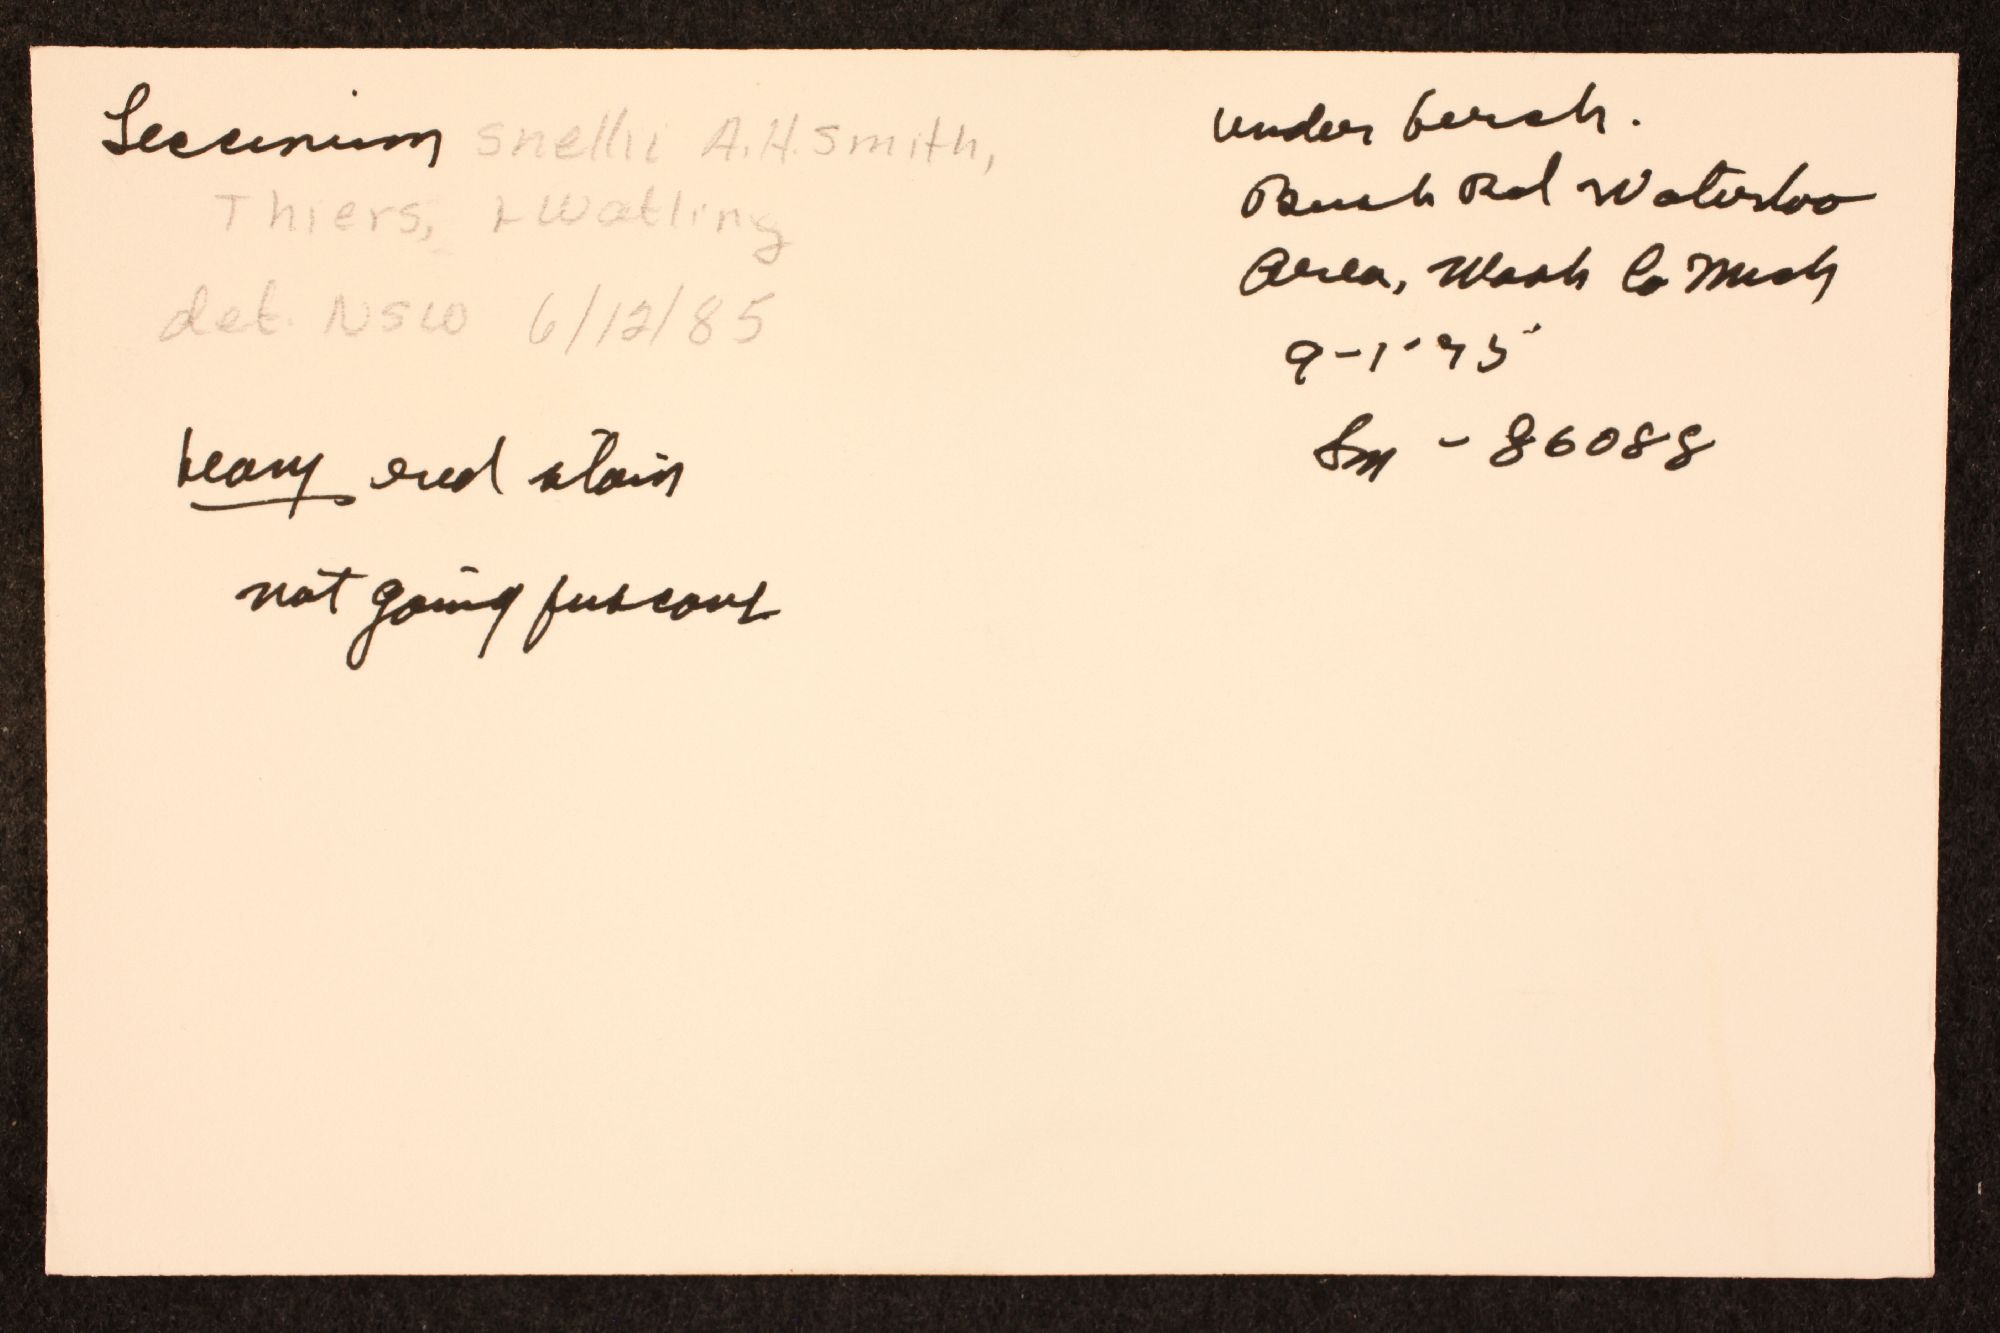 Leccinum snellii A.H. Smith,
Thiers, & Watling
det. NSW 6/12/85
heavy red stain
not going fuscous
under birch.
Bush Rd Waterloo
Area, Wash Co Mich
9-1-75
Sm - 86088